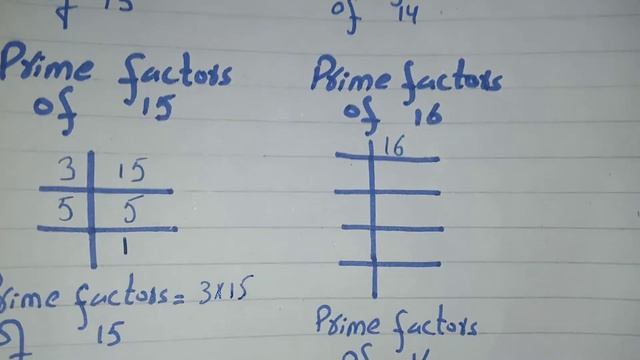 of 15
of 14
Prime factors
of 15
3 15
5 5
1
Prime factors = 3x15
of 15
Prime factors
of 16
16
Prime factors
of